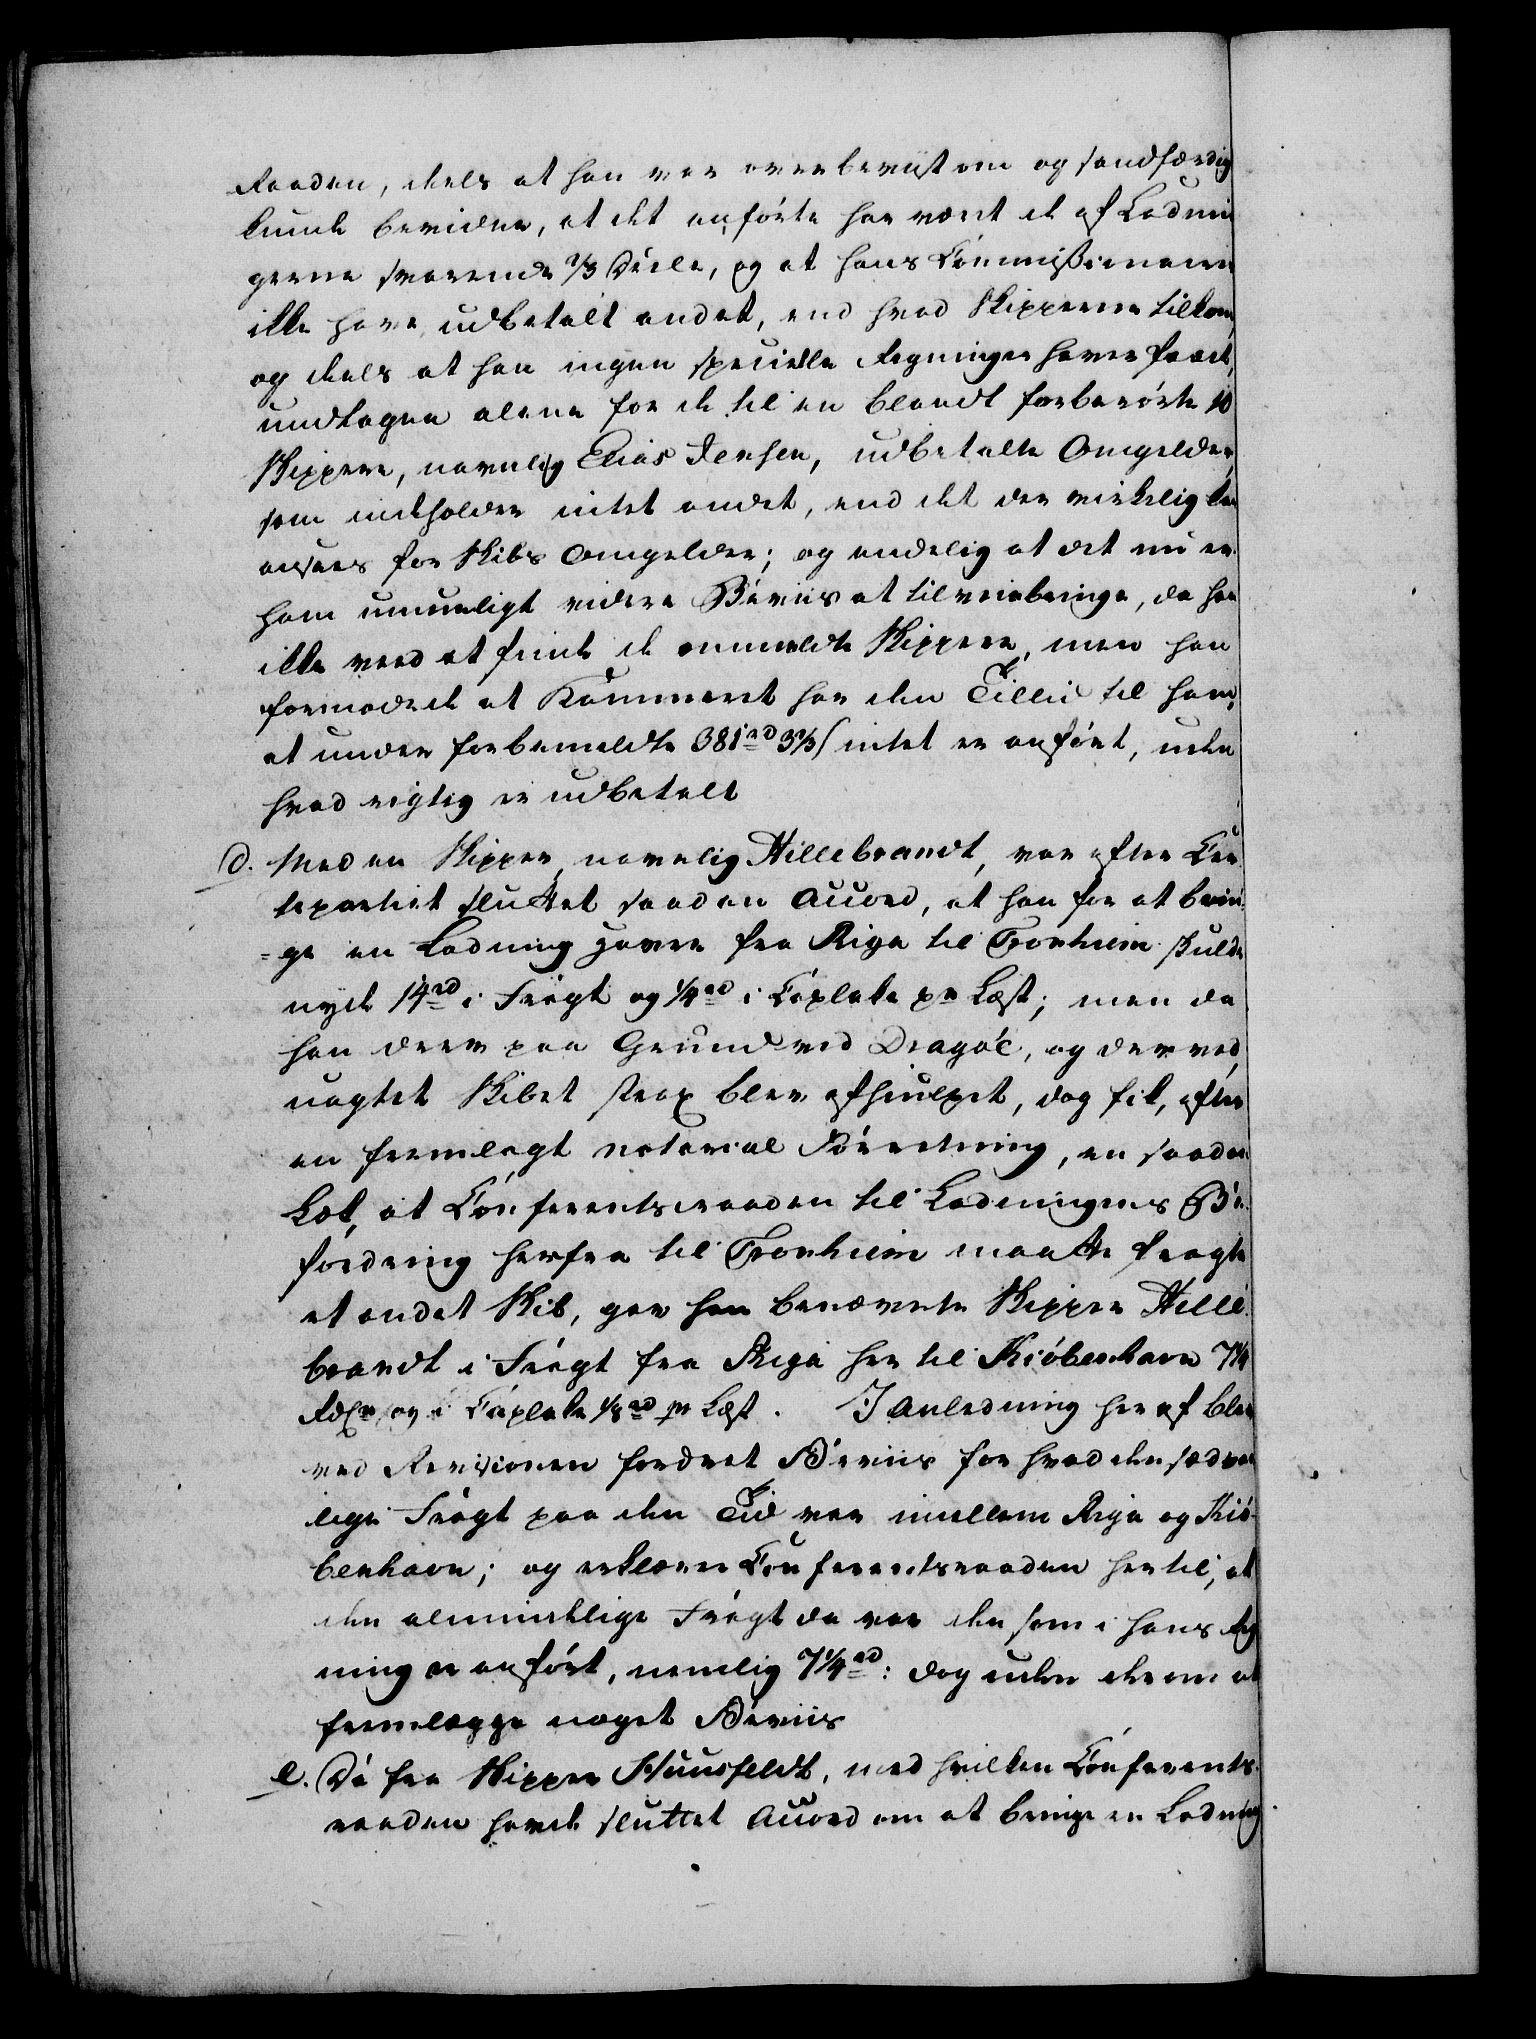 Raaden, deels at han var overbeviist om og sandfærdig
kunde bevidne, at det anførte har været de af Ladnin
gerne svarende 2/3 Deele, og at hans Commissionairer
ikke have udbetalt andet, end hvad Skipperne tilkom,
og deels at han ingen specielle Regninger haver faaet,
undtagen alene for de til en blandt forberørte 10
Skippere, navnlig Elias Jensen, udbetalte Omgelder,
som indholder intet andet, end det der virkelig kan
ansees for Skibs Omgelder; og endelig at det nu er
ham umueligt videre Beviis at tilveiebringe, da han
ikke veed at finde de ommeldte Skippere, men han
formodede at Kammeret har den Tillid til ham,
at under forbemeldte 381 rd 3 1/3 s intet er anført, uden
hvad rigtig er udbetalt
d. Med en Skipper, navnlig Hillebrandt, var efter Cer
tepartiet sluttet saadan Accord, at han for at brin
=ge en Ladning Varer fra Riga til Tronhiem skulde
nyde 14 rd i Fragt og 1/4 rd i Caplake pr Læst; men da
han drev paa Grund ved Dragöe, og derved,
uagtet Skibet strax blev afhiulpet, dog fik, efter
en fremlagt notarial Forretning, en saadan
Læk, at Conferentsraaden til Ladningens Be
fordring herfra til Tronhiem maatte fragte
et andet Skib, gav han benævnte Skipper Hille
brandt i Fragt fra Riga her til Kiöbenhavn 7 1/4
Rdlr og i Caplake 1/8 rd pr Læst. I Anledning heraf blev
ved Revisionen fordret Beviis for hvad den sædvan
lige Fragt paa den Tid var imellem Riga og Kiö-
benhavn; og erklærer Conferentsraaden hertil, at
den almindelige Fragt da var den som i hans Reg
ning er anført, nemlig 7 1/4 rd: dog uden derom at
fremlægge noget Beviis
e. Da fra Skipper Huusfeldt, med hvilken Conferents-
raaden havde sluttet Accord om at bringe en Ladning